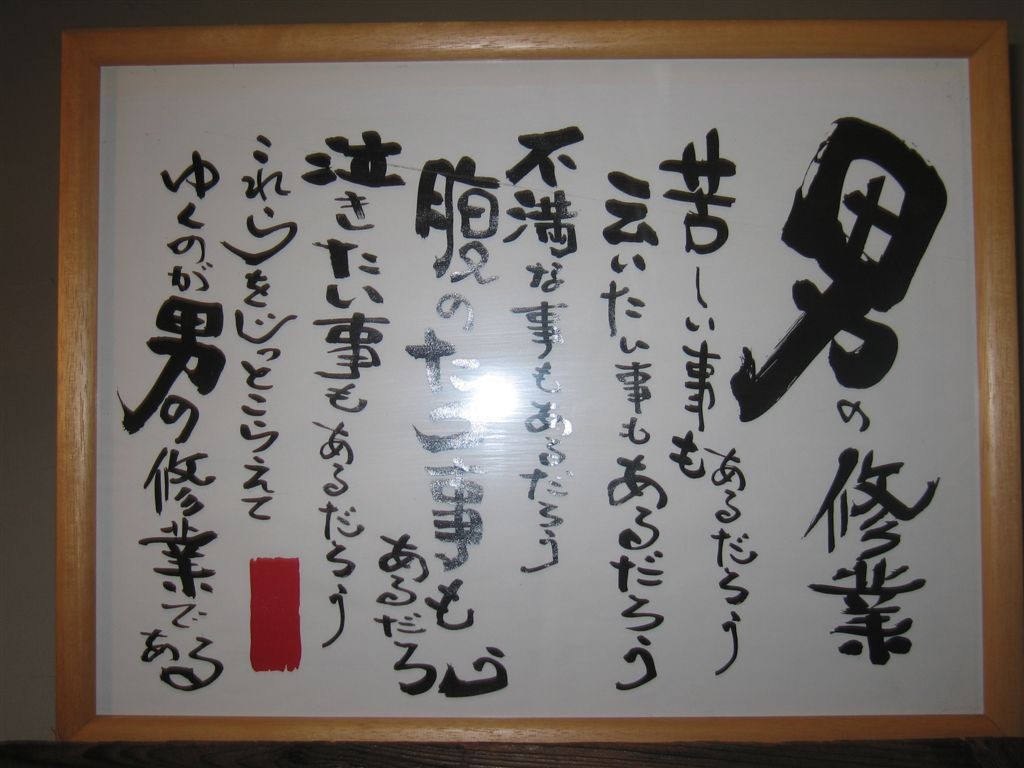 男の修業
苦しい事もあるだろう
云いたい事もあるだろう
不満な事もあるだろう
腹のたつ事もあるだろう
泣きたい事もあるだろう
これらをじっとこらえて
ゆくのが男の修業である